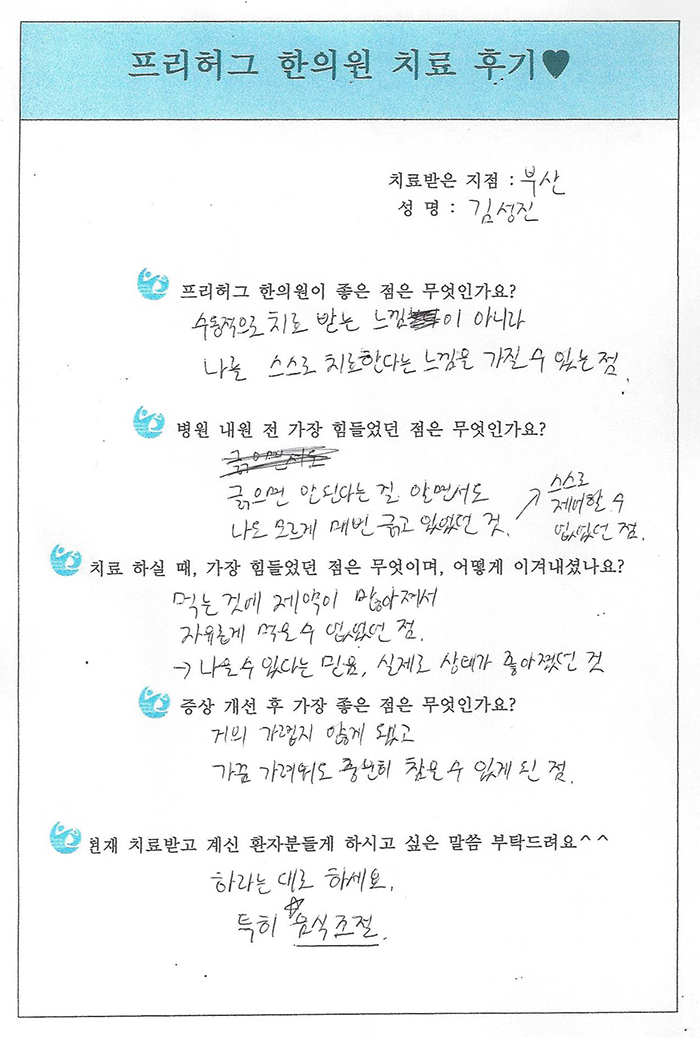 프리허그 한의원 치료 후기♥
치료받은 지점 : 부산
성 명 : 김성진
프리허그 한의원이 좋은 점은 무엇인가요?
수동적으로 치료 받는 느낌이 아니라
나를 스스로 치료한다는 느낌을 가질 수 있는 점.
병원 내원 전 가장 힘들었던 점은 무엇인가요?
긁으면서도
긁으면 안된다는 걸 알면서도
나도 모르게 매번 긁고 있었던 것.
↗ 스스로
제어할 수
없었던 점.
치료 하실 때, 가장 힘들었던 점은 무엇이며, 어떻게 이겨내셨나요?
먹는 것에 제약이 많아져서
자유롭게 먹을 수 없었던 점.
→ 나을 수 있다는 믿음, 실제로 상태가 좋아졌던 것
증상 개선 후 가장 좋은 점은 무엇인가요?
거의 가렵지 않게 됐고
가끔 가려워도 충분히 참을 수 있게 된 점.
현재 치료받고 계신 환자분들게 하시고 싶은 말씀 부탁드려요^^
하라는 대로 하세요.
특히 ☆음식조절.